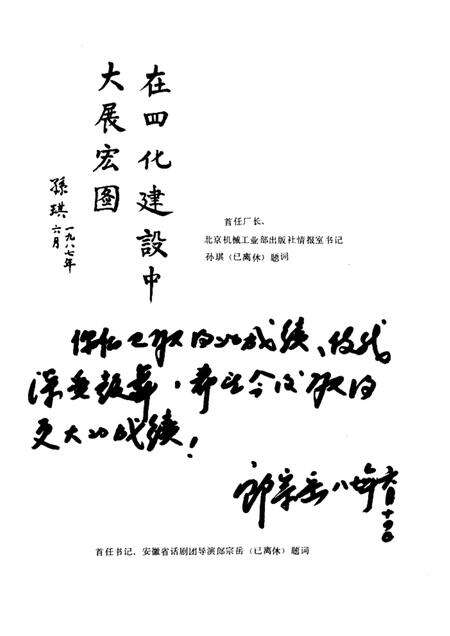 在四化建設中
大展宏图
孫琪
一九八七年
六月
首任厂长、
北京机械工业部出版社情报室书记
孙琪（已离休）题词
你们已取得的成绩、使我
深受鼓舞，希望今后取得
更大的成绩！
郎宗岳 八七年六月十日
首任书记、安徽省话剧团导演郎宗岳（已离休）题词